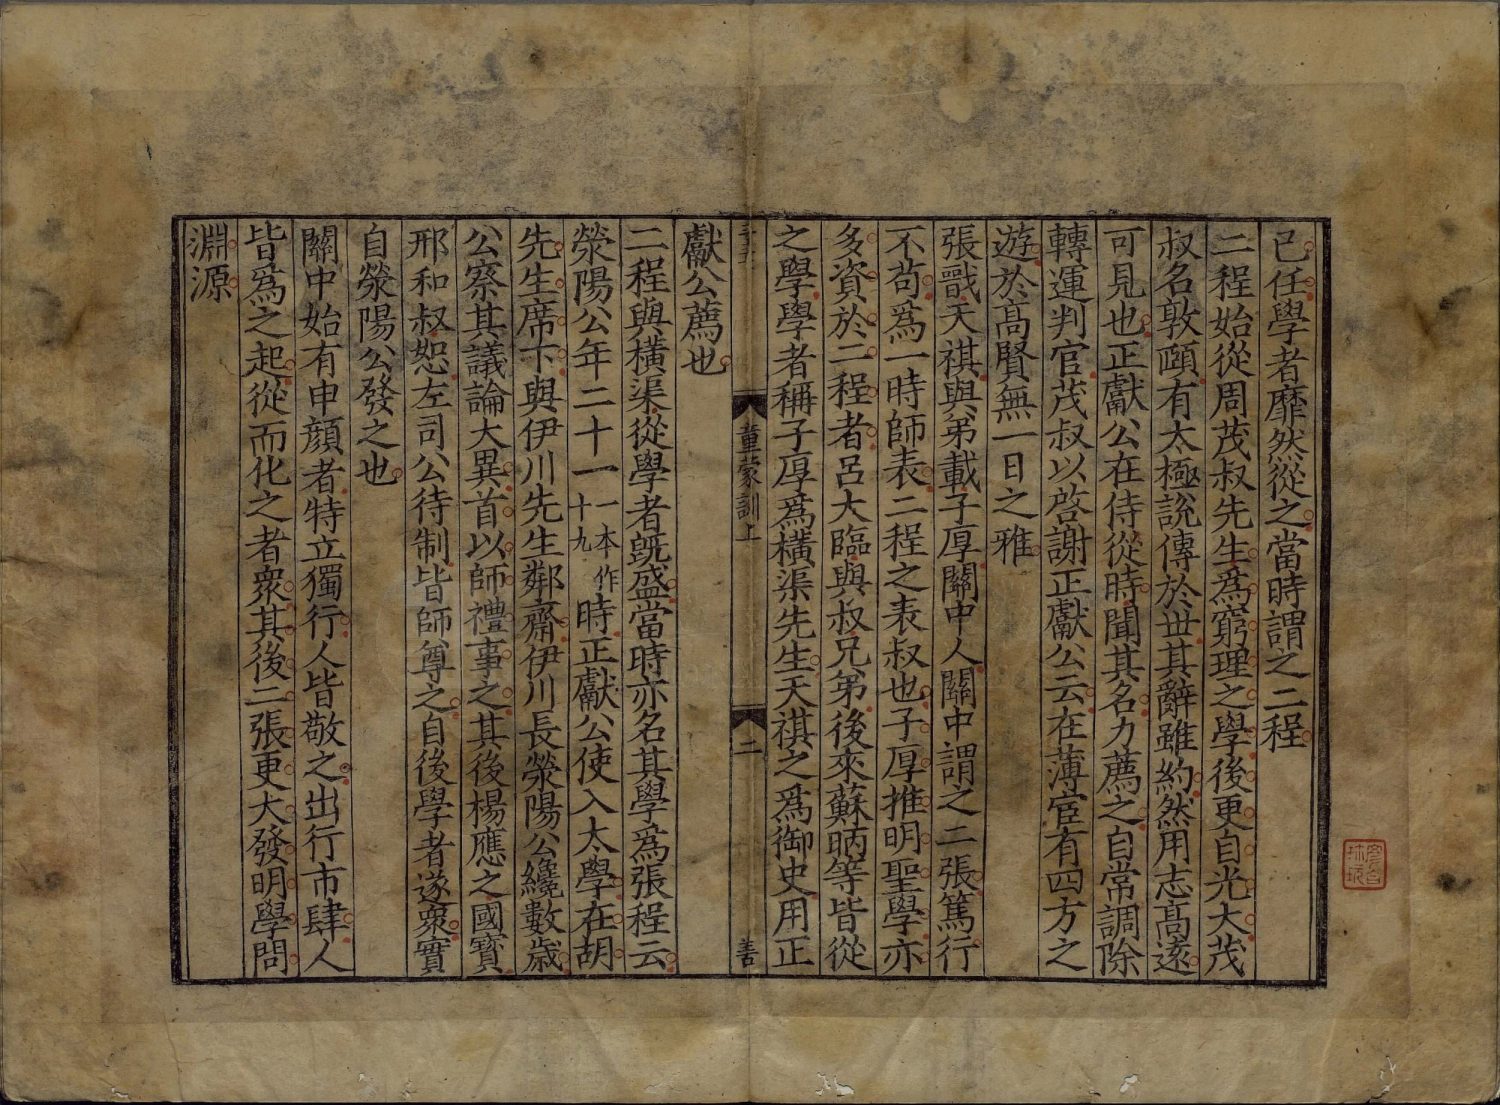 己任學者靡然從之當時謂之二程
二程始從周茂叔先生爲窮理之學後更自光大茂
叔名敦頤有太極說傳於世其辭雖約然用志高遠
可見也正獻公在侍從時聞其名力薦之自常調除
轉運判官茂叔以啓謝正獻公云在薄宦有四方之
遊於高賢無一日之雅
張戩天祺與弟載子厚關中人關中謂之二張篤行
不苟爲一時師表二程之表叔也子厚推明聖學亦
多資於二程者呂大臨與叔兄弟後來蘇昞等皆從
之學學者稱子厚爲橫渠先生天祺之爲御史用正
童蒙訓上
二
善
獻公薦也
二程與橫渠從學者旣盛當時亦名其學爲張程云
滎陽公年二十一一本作十九時正獻公使入太學在胡
先生席下與伊川先生鄰齋伊川長滎陽公纔數歲
公察其議論大異首以師禮事之其後楊應之國寶
邢和叔恕左司公待制皆師尊之自後學者遂衆實
自滎陽公發之也
關中始有申顏者特立獨行人皆敬之出行市肆人
皆爲之起從而化之者衆其後二張更大發明學問
淵源